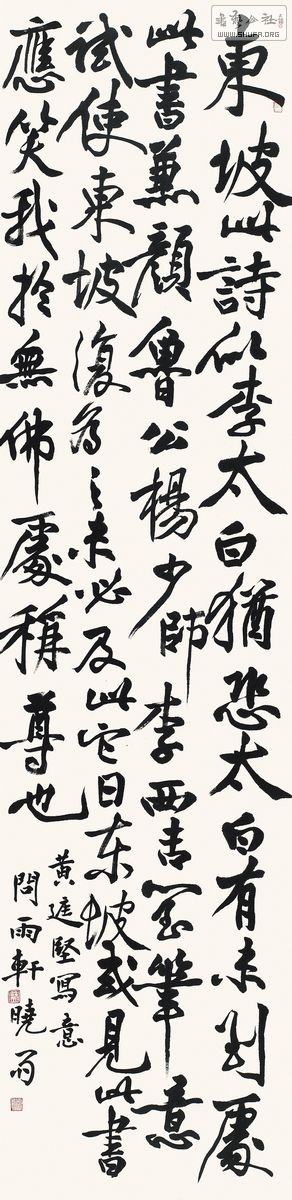 東坡此詩似李太白猶恐太白有未到處
此書兼顏魯公楊少師李西臺筆意
試使東坡復為之未必及此它日东坡或見此書
應笑我於無佛處稱尊也
黃庭堅寫意
問雨軒曉翁
WWW.SHUFA.ORG